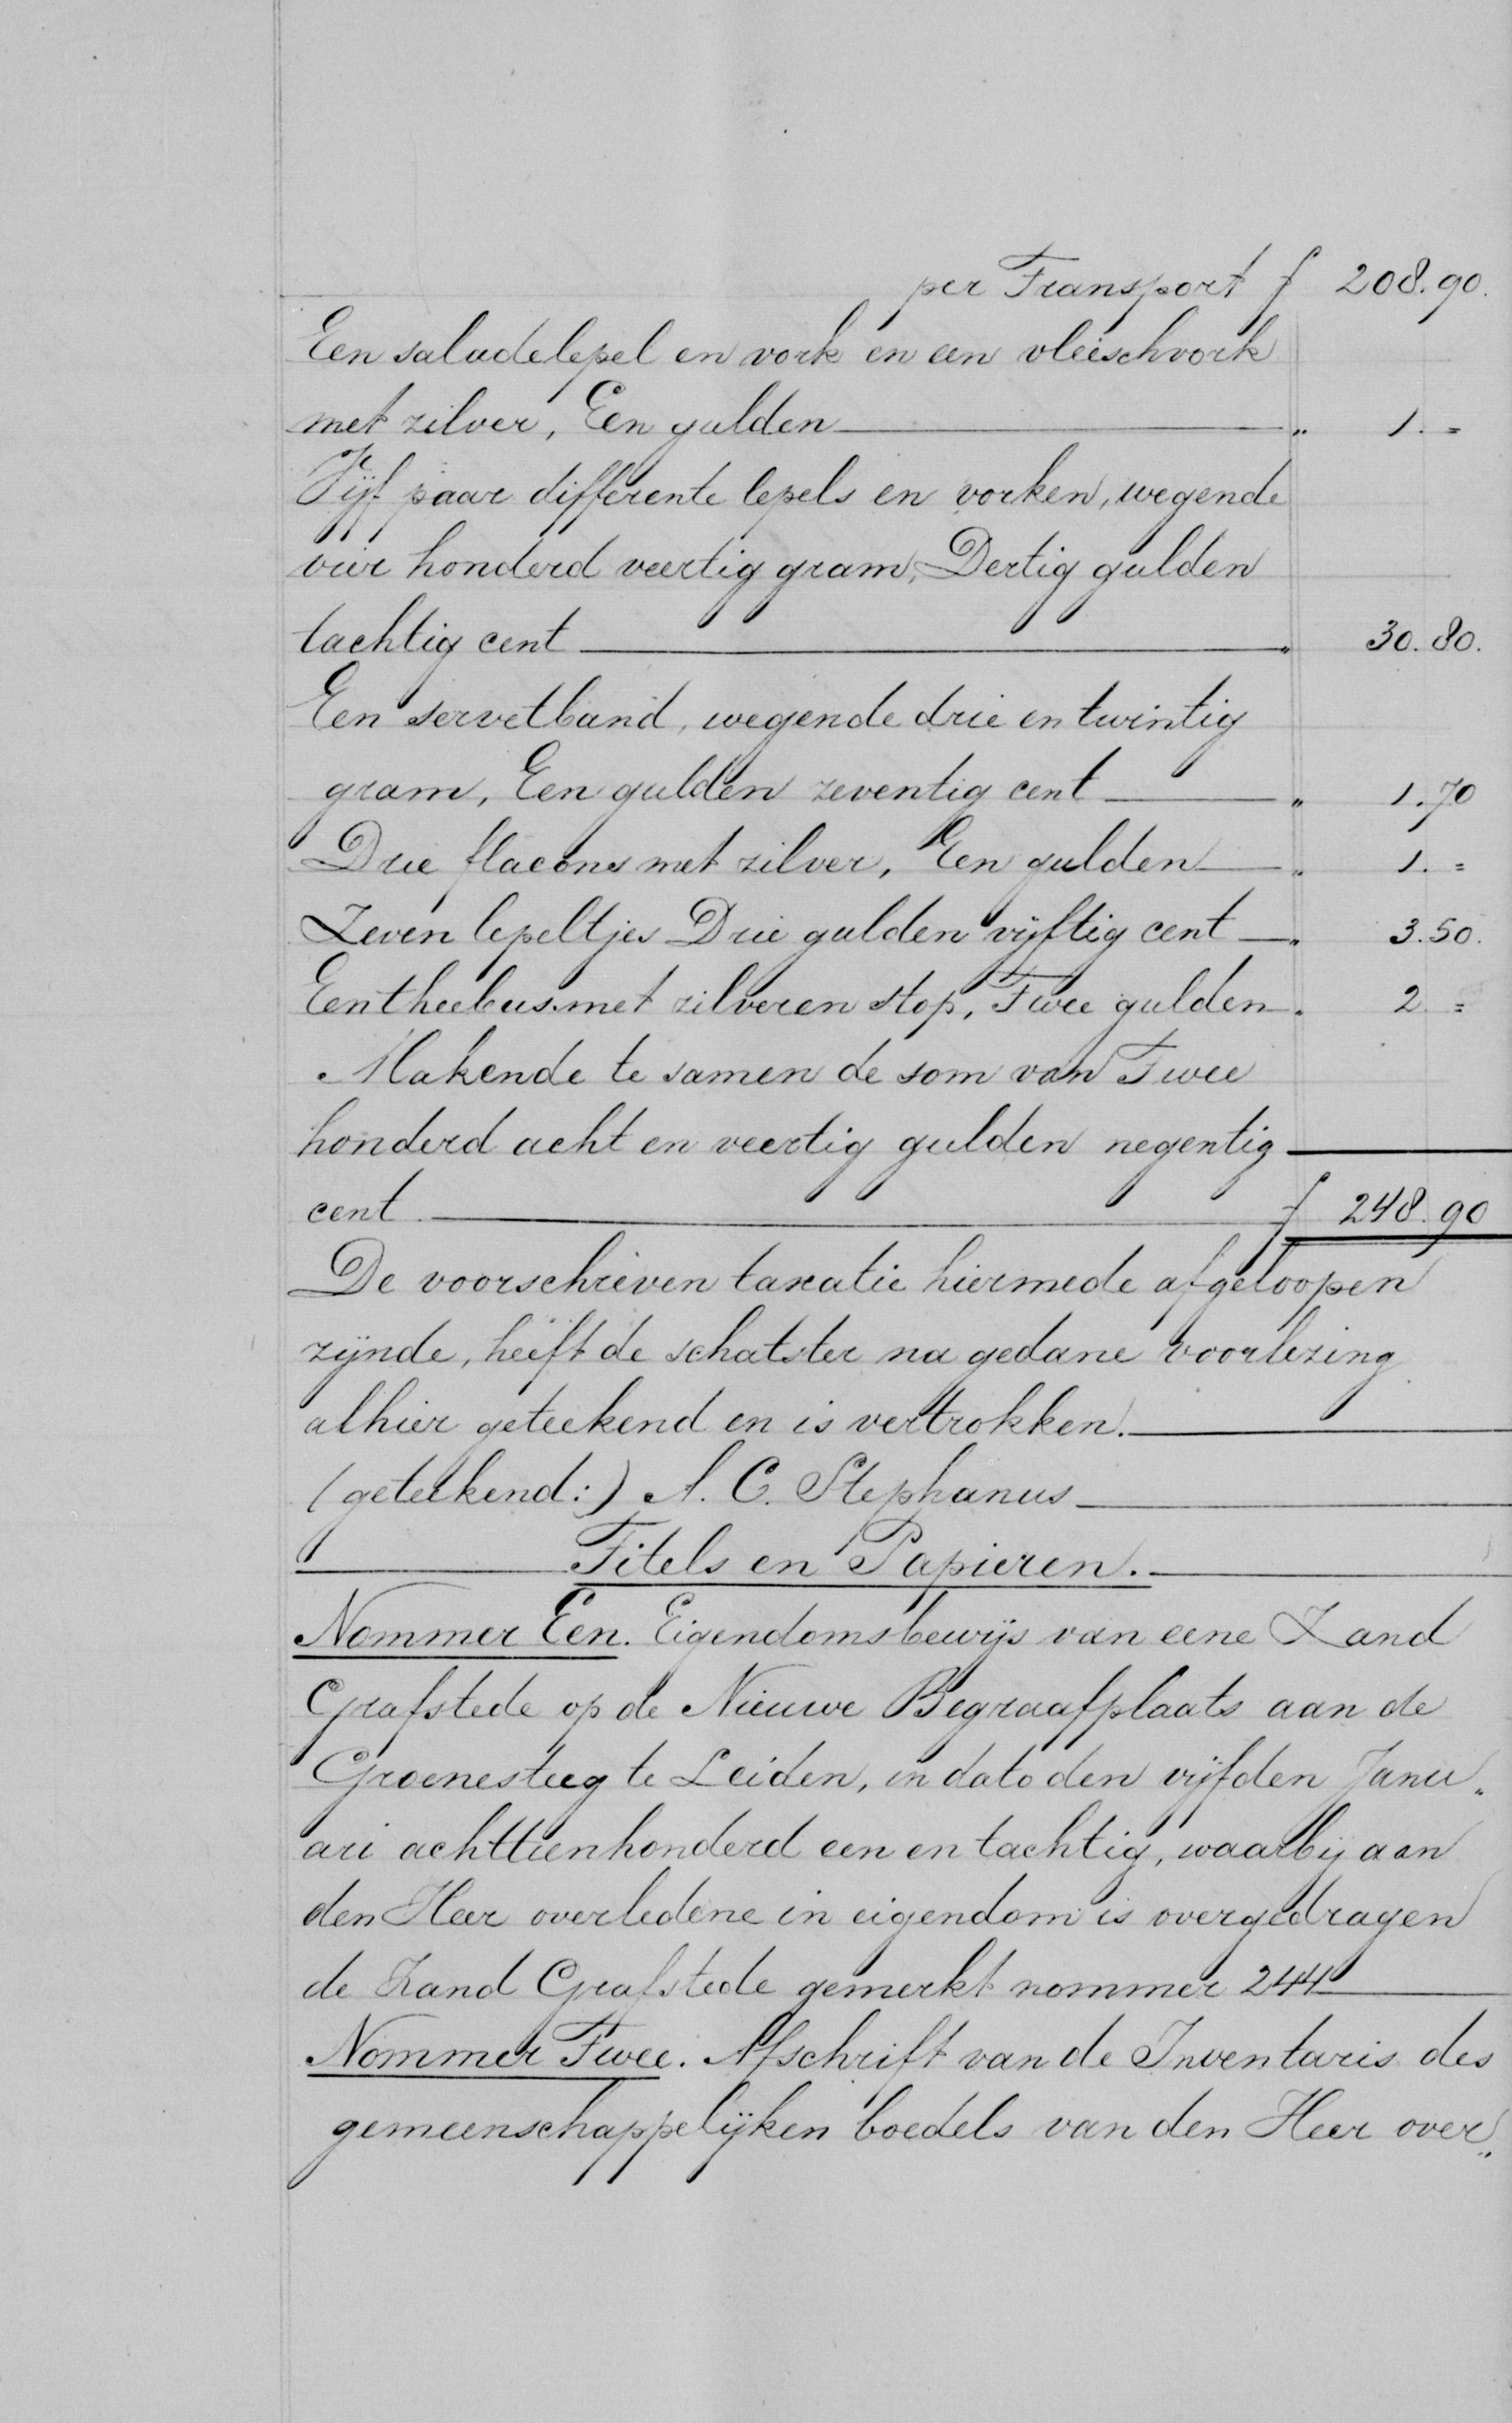 per Transport f 208.90.
Een saladelepel en vork en een vleeschvork
met zilver, Een gulden " 1. =
Vijf paar differente lepels en vorken, wegende
vier honderd veertig gram, Dertig gulden
tachtig cent " 30.80.
Een servetband, wegende drie en twintig
gram, Een gulden zeventig cent " 1.70
Drie flacons met zilver, Een gulden " 1. =
Zeven lepeltjes Drie gulden vijftig cent " 3.50.
Een theebus met zilveren stop, Twee gulden " 2 =
Makende te samen de som van Twee
honderd acht en veertig gulden negentig
cent f 248.90
De voorschreven taxatie hiermede afgeloopen
zijnde, heeft de schatster na gedane voorlezing
alhier geteekend en is vertrokken.
(geteekend:) A. C. Stephanus
Titels en Papieren.
Nommer Een. Eigendomsbewijs van eene Zand
Grafstede op de Nieuwe Begraafplaats aan de
Groenesteeg te Leiden, in dato den vijfden Janu„
ari achttienhonderd een en tachtig, waarbij aan
den Heer overledene in eigendom is overgedragen
de Zand Grafstede gemerkt nommer 244
Nommer Twee. Afschrift van de Inventaris des
gemeenschappelijken boedels van den Heer over„